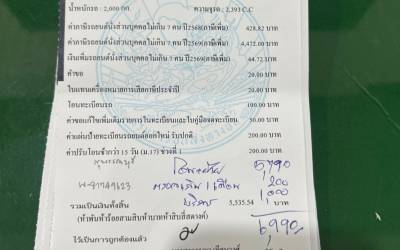 น้ำหนักรถ : 2,000 กก. ความจุรถ : 2,393 C.C
ค่าภาษีรถยนต์นั่งส่วนบุคคลไม่เกิน 7 คน ปี2568(ภาษีเพิ่ม) 428.82 บาท
ค่าภาษีรถยนต์นั่งส่วนบุคคลไม่เกิน 7 คน ปี2569(ภาษีเพิ่ม) 4,472.00 บาท
เงินเพิ่มรถยนต์นั่งส่วนบุคคลไม่เกิน 7 คน ปี2569(ภาษีเพิ่ม) 44.72 บาท
ค่าขอ 20.00 บาท
ใบแทนเครื่องหมายการเสียภาษีประจำปี 20.00 บาท
โอนทะเบียนรถ 100.00 บาท
ค่าขอแก้ไขเพิ่มเติมรายการในทะเบียนและใบคู่มือจดทะเบียน 50.00 บาท
ค่าแผ่นป้ายทะเบียนรถยนต์ออกใหม่ รับปกติ 200.00 บาท
ค่าปรับโอนช้ากว่า 15 วัน (ม.17) ช่วงที่ 1 200.00 บาท
5790
1200
รวมเป็นเงินทั้งสิ้น บริการ 5,535.54 บาท
(ห้าพันห้าร้อยสามสิบห้าบาทห้าสิบสี่สตางค์) 6990
ไว้เป็นการถูกต้องแล้ว